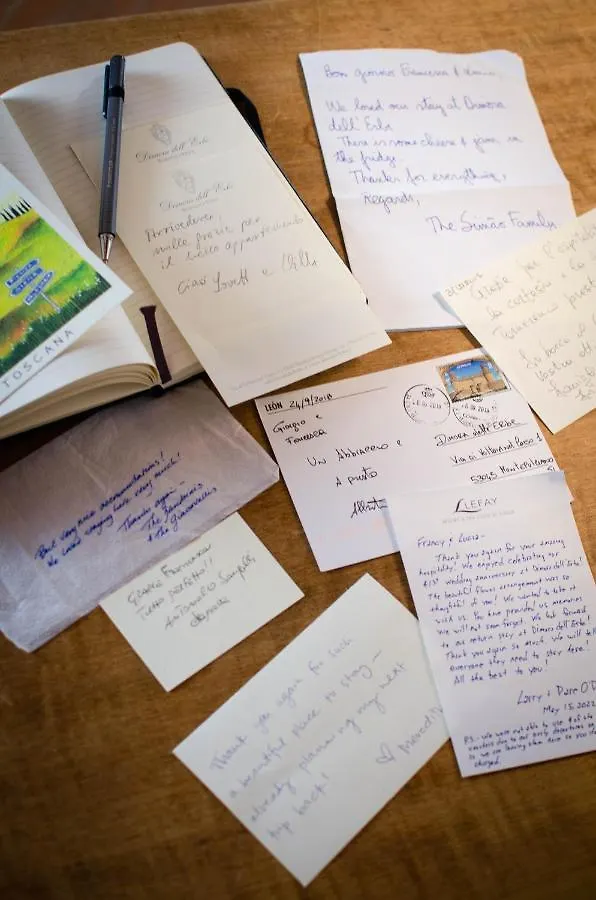 Dimora dell' Erbe
Dimora dell' Erbe
Arrivederci,
mille grazie per
il bello appartemento
Ciao!
Bon giorno Francesca &
We loved our stay at Dimora
dell' Erbe
There is some cheese & jam in
the fridge.
Thanks for everything,
Regards,
The Simão Family
Grazie per l'
la cortesia e la
TOSCANA
LEÓN 24/9/2018
Giorgio e
Francesca
Un Abbraccio e
A presto
Dimora dell' Erbe
53045 Montepulciano
But very nice accommodations!
We loved staying here very much!
Thanks again -
The
& the
Grazie Francesca
Tutto perfetto!!
Thank you again for such
a beautiful place to stay -
already planning my next
trip back!
♡ Meredith
LEFAY
Francy + Lucia -
Thank you again for your amazing
hospitality! We enjoyed celebrating our
wedding anniversary at Dimora dell' Erbe!
The beautiful flower arrangement was so
thoughtful of you! We wanted to take it
with us. You have provided us memories
We will not soon forget. We look forward
to our return stay at Dimora dell' Erbe!
Thank you again so much. We will tell
everyone they need to stay here!
All the best to you!
Larry + Dare O'D
May 15, 2022
P.S. - We were not able to use 4 of the
vouchers due to our early departures
so we are leaving them here so you
charged.